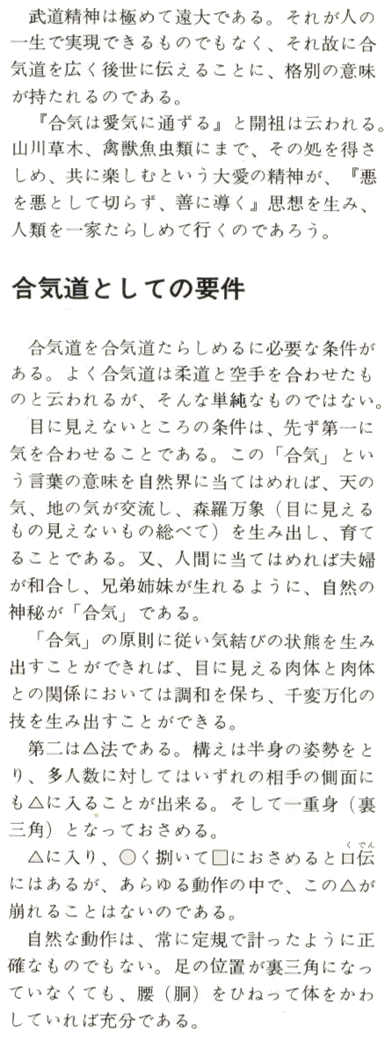 武道精神は極めて遠大である。それが人の
一生で実現できるものでもなく、それ故に合
気道を広く後世に伝えることに、格別の意味
が持たれるのである。
『合気は愛気に通ずる』と開祖は云われる。
山川草木、禽獣魚虫類にまで、その処を得さ
しめ、共に楽しむという大愛の精神が、『悪
を悪として切らず、善に導く』思想を生み、
人類を一家たらしめて行くのであろう。
合気道としての要件
合気道を合気道たらしめるに必要な条件が
ある。よく合気道は柔道と空手を合わせたも
のと云われるが、そんな単純なものではない。
目に見えないところの条件は、先ず第一に
気を合わせることである。この「合気」とい
う言葉の意味を自然界に当てはめれば、天の
気、地の気が交流し、森羅万象（目に見える
もの見えないもの総べて）を生み出し、育て
ることである。又、人間に当てはめれば夫婦
が和合し、兄弟姉妹が生れるように、自然の
神秘が「合気」である。
「合気」の原則に従い気結びの状態を生み
出すことができれば、目に見える肉体と肉体
との関係においては調和を保ち、千変万化の
技を生み出すことができる。
第二は△法である。構えは半身の姿勢をと
り、多人数に対してはいずれの相手の側面に
も△に入ることが出来る。そして一重身（裏
三角）となっておさめる。
△に入り、○く捌いて□におさめると口伝
にはあるが、あらゆる動作の中で、この△が
崩れることはないのである。
自然な動作は、常に定規で計ったように正
確なものでもない。足の位置が裏三角になっ
ていなくても、腰（胴）をひねって体をかわ
していれば充分である。